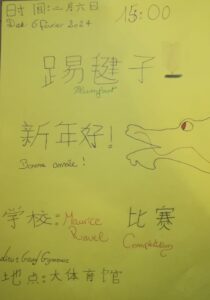 日寸 间:二月六日 15:00
Date 6 Février 2024
踢毽子
Plumfoot
新年好!
Bonne année!
学校: Maurice 比赛
Ravel Compétition
Grand Gymnase
地点:大体育馆